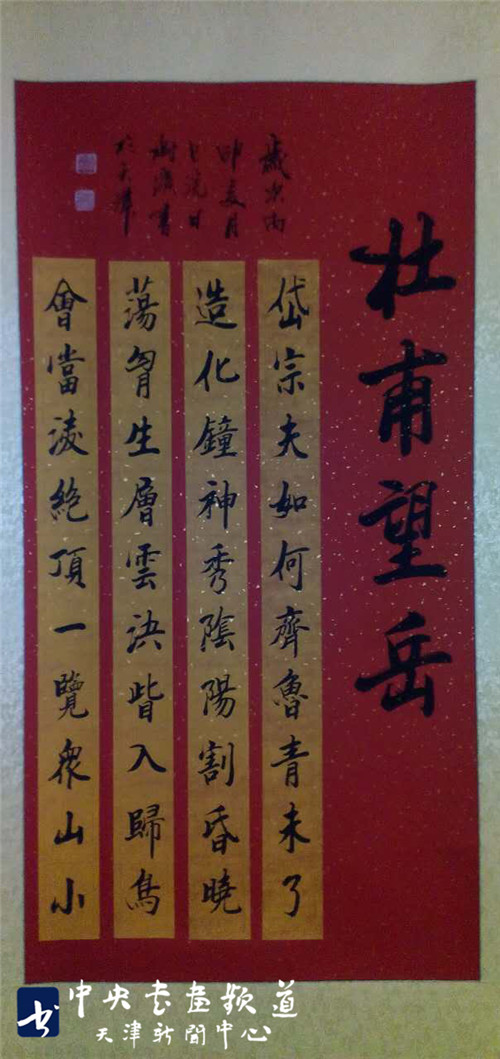 杜甫望岳
岱宗夫如何齊魯青未了
造化鐘神秀陰陽割昏曉
蕩胷生層雲決眥入歸鳥
會當淩絶頂一覽衆山小
歲次丙
申夏月
書
於天津
书
中央书畫频道
天津新聞中心